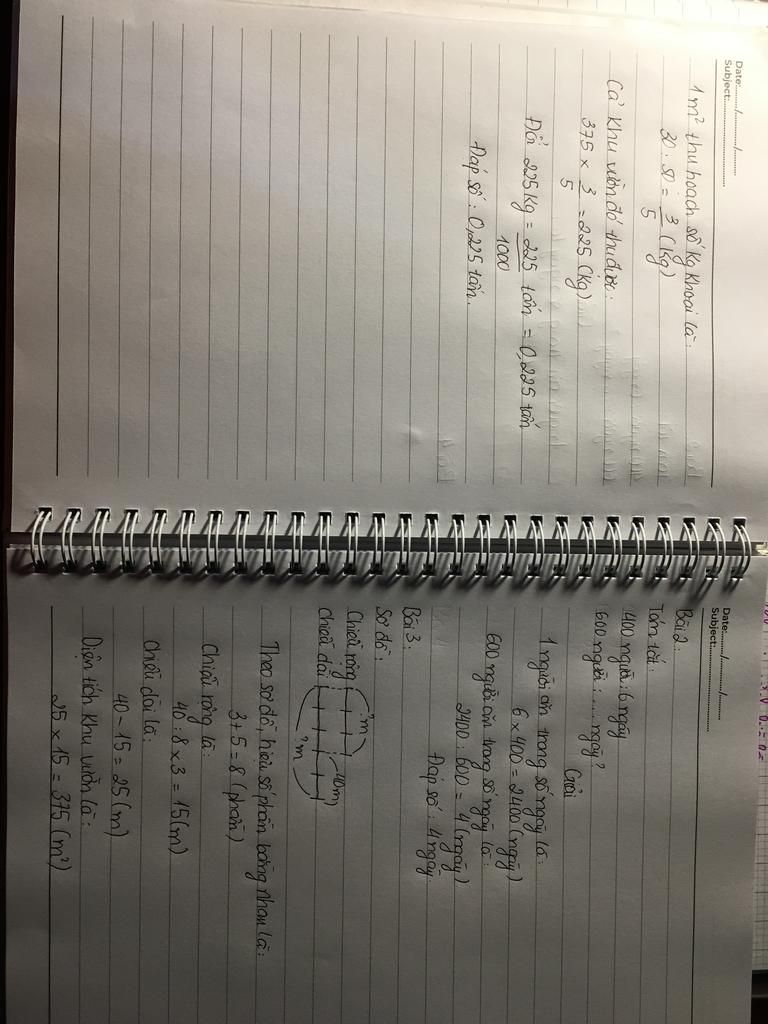 Date:......./......./.......
Subject:..............................
1 m² thu hoạch số kg khoai là:
30 : 50 = 3/5 (kg)
Cả khu vườn đó thu được:
375 × 3/5 = 225 (kg)
Đổi 225kg = 225/1000 tấn = 0,225 tấn
Đáp số: 0,225 tấn.
Date:......./......./.......
Subject:..............................
Bài 2:
Tóm tắt:
400 người: 6 ngày
600 người: .... ngày?
Giải
1 người ăn trong số ngày là:
6 × 400 = 2400 (ngày)
600 người ăn trong số ngày là:
2400 : 600 = 4 (ngày)
Đáp số: 4 ngày.
Bài 3:
Sơ đồ:
?m
Chiều rộng
40m
Chiều dài
?m
Theo sơ đồ, hiệu số phần bằng nhau là:
3 + 5 = 8 (phần)
Chiều rộng là:
40 : 8 × 3 = 15 (m)
Chiều dài là:
40 - 15 = 25 (m)
Diện tích khu vườn là:
25 × 15 = 375 (m²)